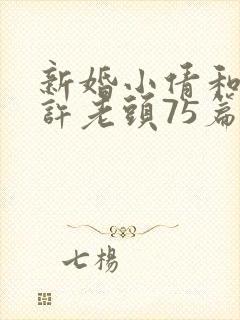 新婚小倩和
許老頭75篇
七楊